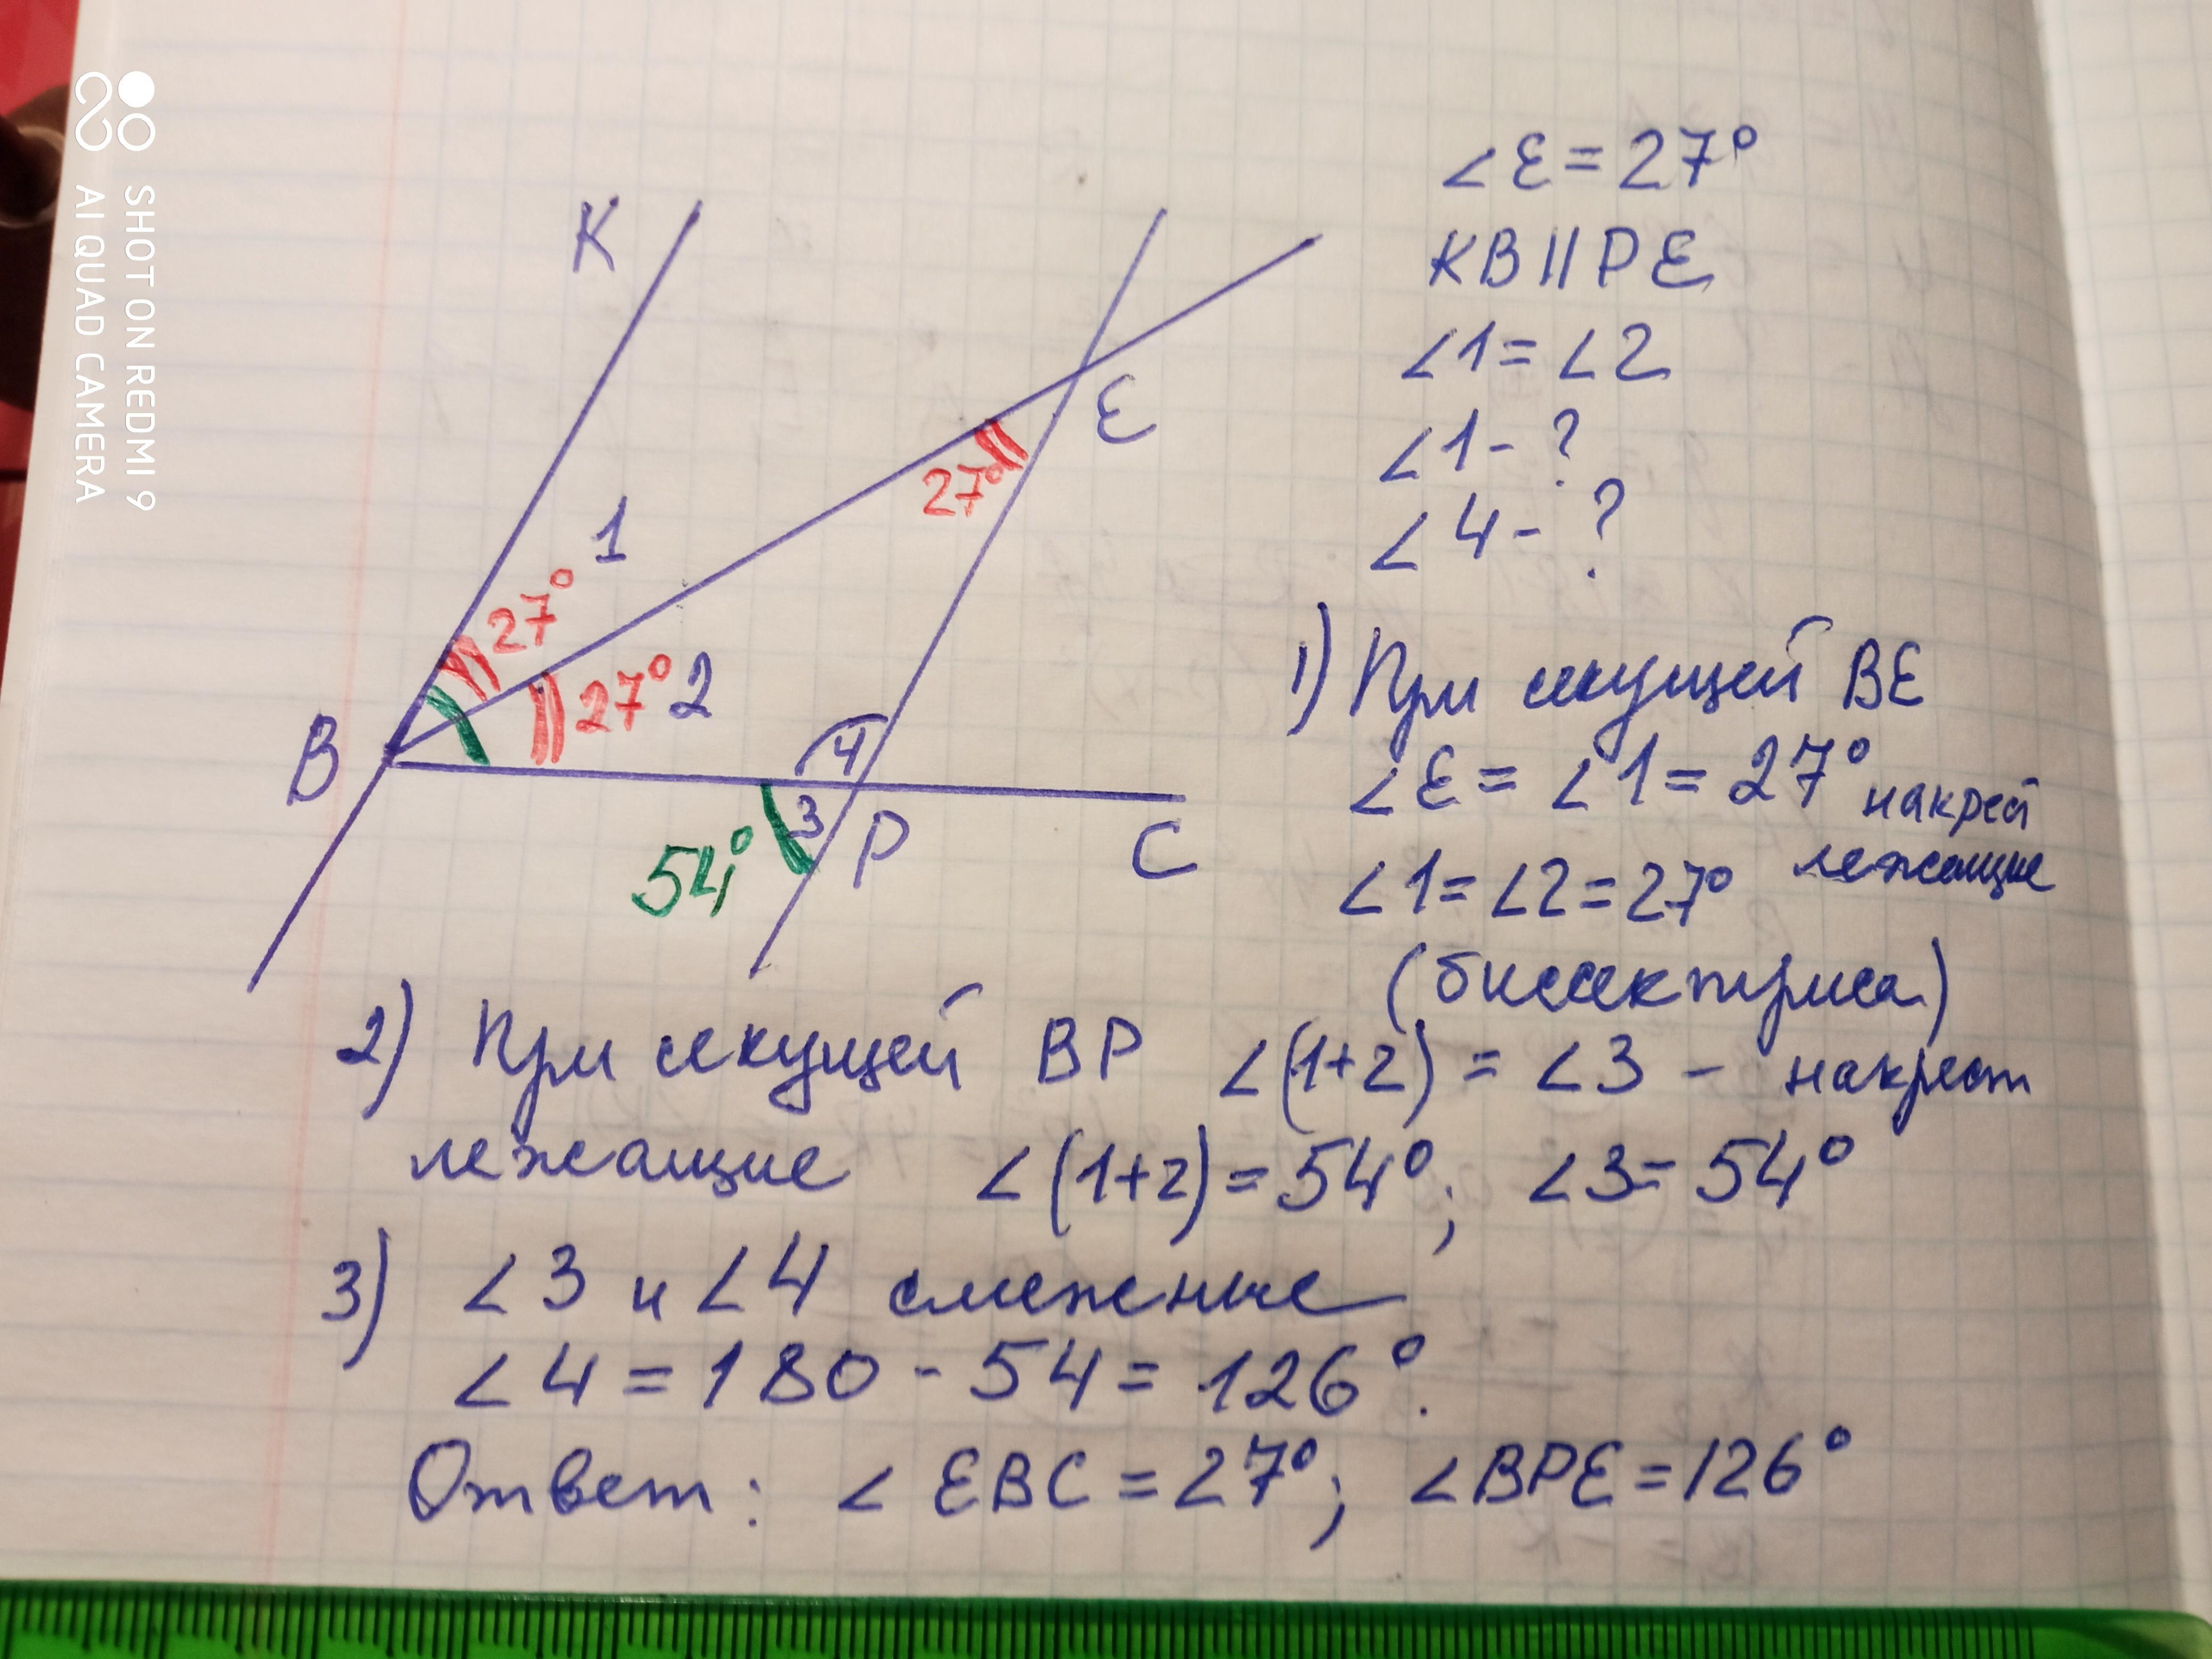 SHOT ON REDMI 9
AI QUAD CAMERA
K
1
27°
27° 2
B
E
27°
4
3
P
C
54°
∠E = 27°
KB || PE
∠1 = ∠2
∠1 - ?
∠4 - ?
1) При секущей BE
∠E = ∠1 = 27° накрест
лежащие
∠1 = ∠2 = 27°
(биссектриса)
2) При секущей BP ∠(1+2) = ∠3 - накрест
лежащие ∠(1+2) = 54°; ∠3 = 54°
3) ∠3 и ∠4 смежные
∠4 = 180 - 54 = 126°.
Ответ: ∠EBC = 27°; ∠BPE = 126°